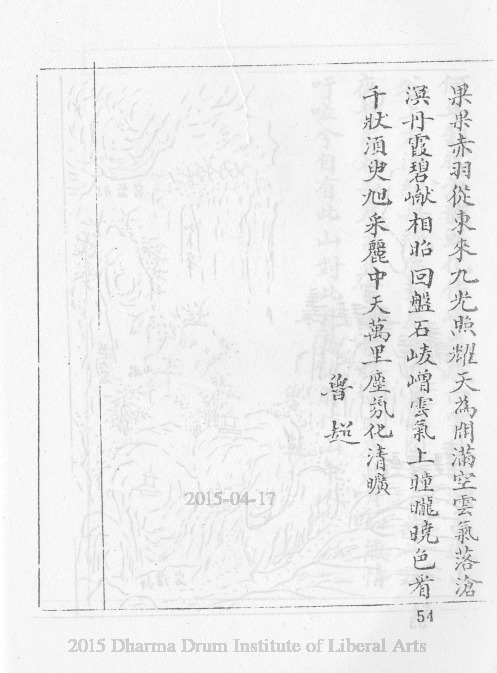 果果赤羽從東來九光照耀天為開滿空雲氣落滄
溟丹霞碧巘相昭回盤石崚嶒雲氣上曈曨曉色看
千狀湏臾旭采麗中天萬里塵氛化清曠
魯超
54
2015-04-17
2015 Dharma Drum Institute of Liberal Arts